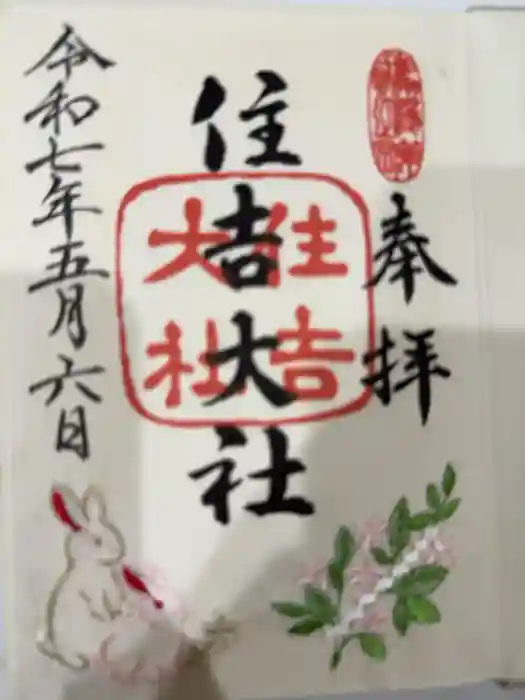 奉拝
住吉大社
住吉大社
令和七年五月六日